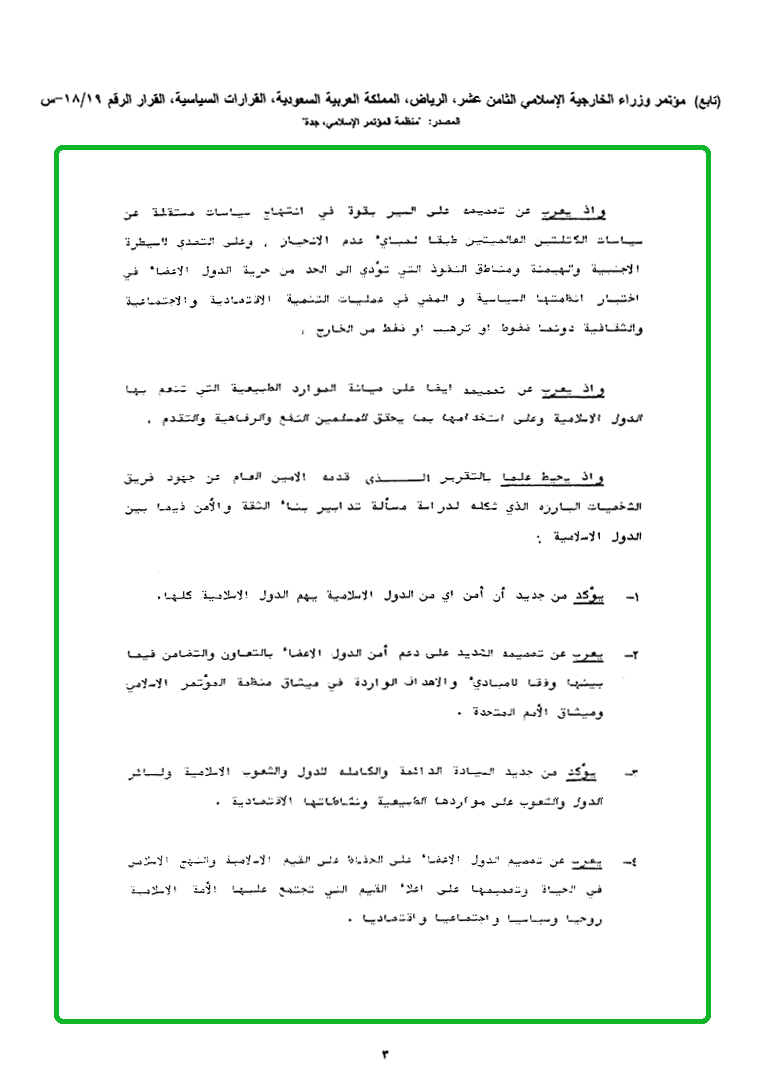 (تابع) مؤتمر وزراء الخارجية الإسلامي الثامن عشر، الرياض، المملكة العربية السعودية، القرارات السياسية، القرار الرقم ١٨/١٩-س
المصدر: "منظمة المؤتمر الإسلامي، جدة"
واذ يعرب عن تصميمه على السير بقوة في انتهاج سياسات مستقلة عن
سياسات الكتلتين العالميتين طبقا لمبادئ عدم الانحياز ، وعلى التصدي للسيطرة
الاجنبية والهيمنة ومناطق النفوذ التي تؤدي الى الحد من حرية الدول الاعضاء في
اختيار انظمتها السياسية و المضي في عمليات التنمية الاقتصادية والاجتماعية
والثقافية دونما ضغوط او ترهيب او ضغط من الخارج ،
واذ يعرب عن تصميمه ايضا على صيانة الموارد الطبيعية التي تنعم بها
الدول الاسلامية وعلى استخدامها بما يحقق للمسلمين النفع والرفاهية والتقدم ،
واذ يحيط علما بالتقرير الـــــذى قدمه الامين العام عن جهود فريق
الشخصيات البارزه الذي شكله لدراسة مسألة تدابير بناء الثقة والأمن فيما بين
الدول الاسلامية :
١- يؤكد من جديد أن أمن اي من الدول الاسلامية يهم الدول الاسلامية كلها.
٢- يعرب عن تصميمه الشديد على دعم أمن الدول الاعضاء بالتعاون والتضامن فيما
بينها وفقا للمبادئ والاهداف الواردة في ميثاق منظمة المؤتمر الاسلامي
وميثاق الأمم المتحدة .
٣- يؤكد من جديد السيادة الدائمة والكامله للدول والشعوب الاسلامية ولسائر
الدول والشعوب على مواردها الطبيعية ونشاطاتها الاقتصادية .
٤- يعرب عن تصميم الدول الاعضاء على الحفاظ على القيم الاسلامية والنهج الاسلامي
في الحياة وتصميمها على اعلاء القيم التي تجتمع عليها الأمة الاسلامية
روحيا وسياسيا واجتماعيا واقتصاديا .
٣